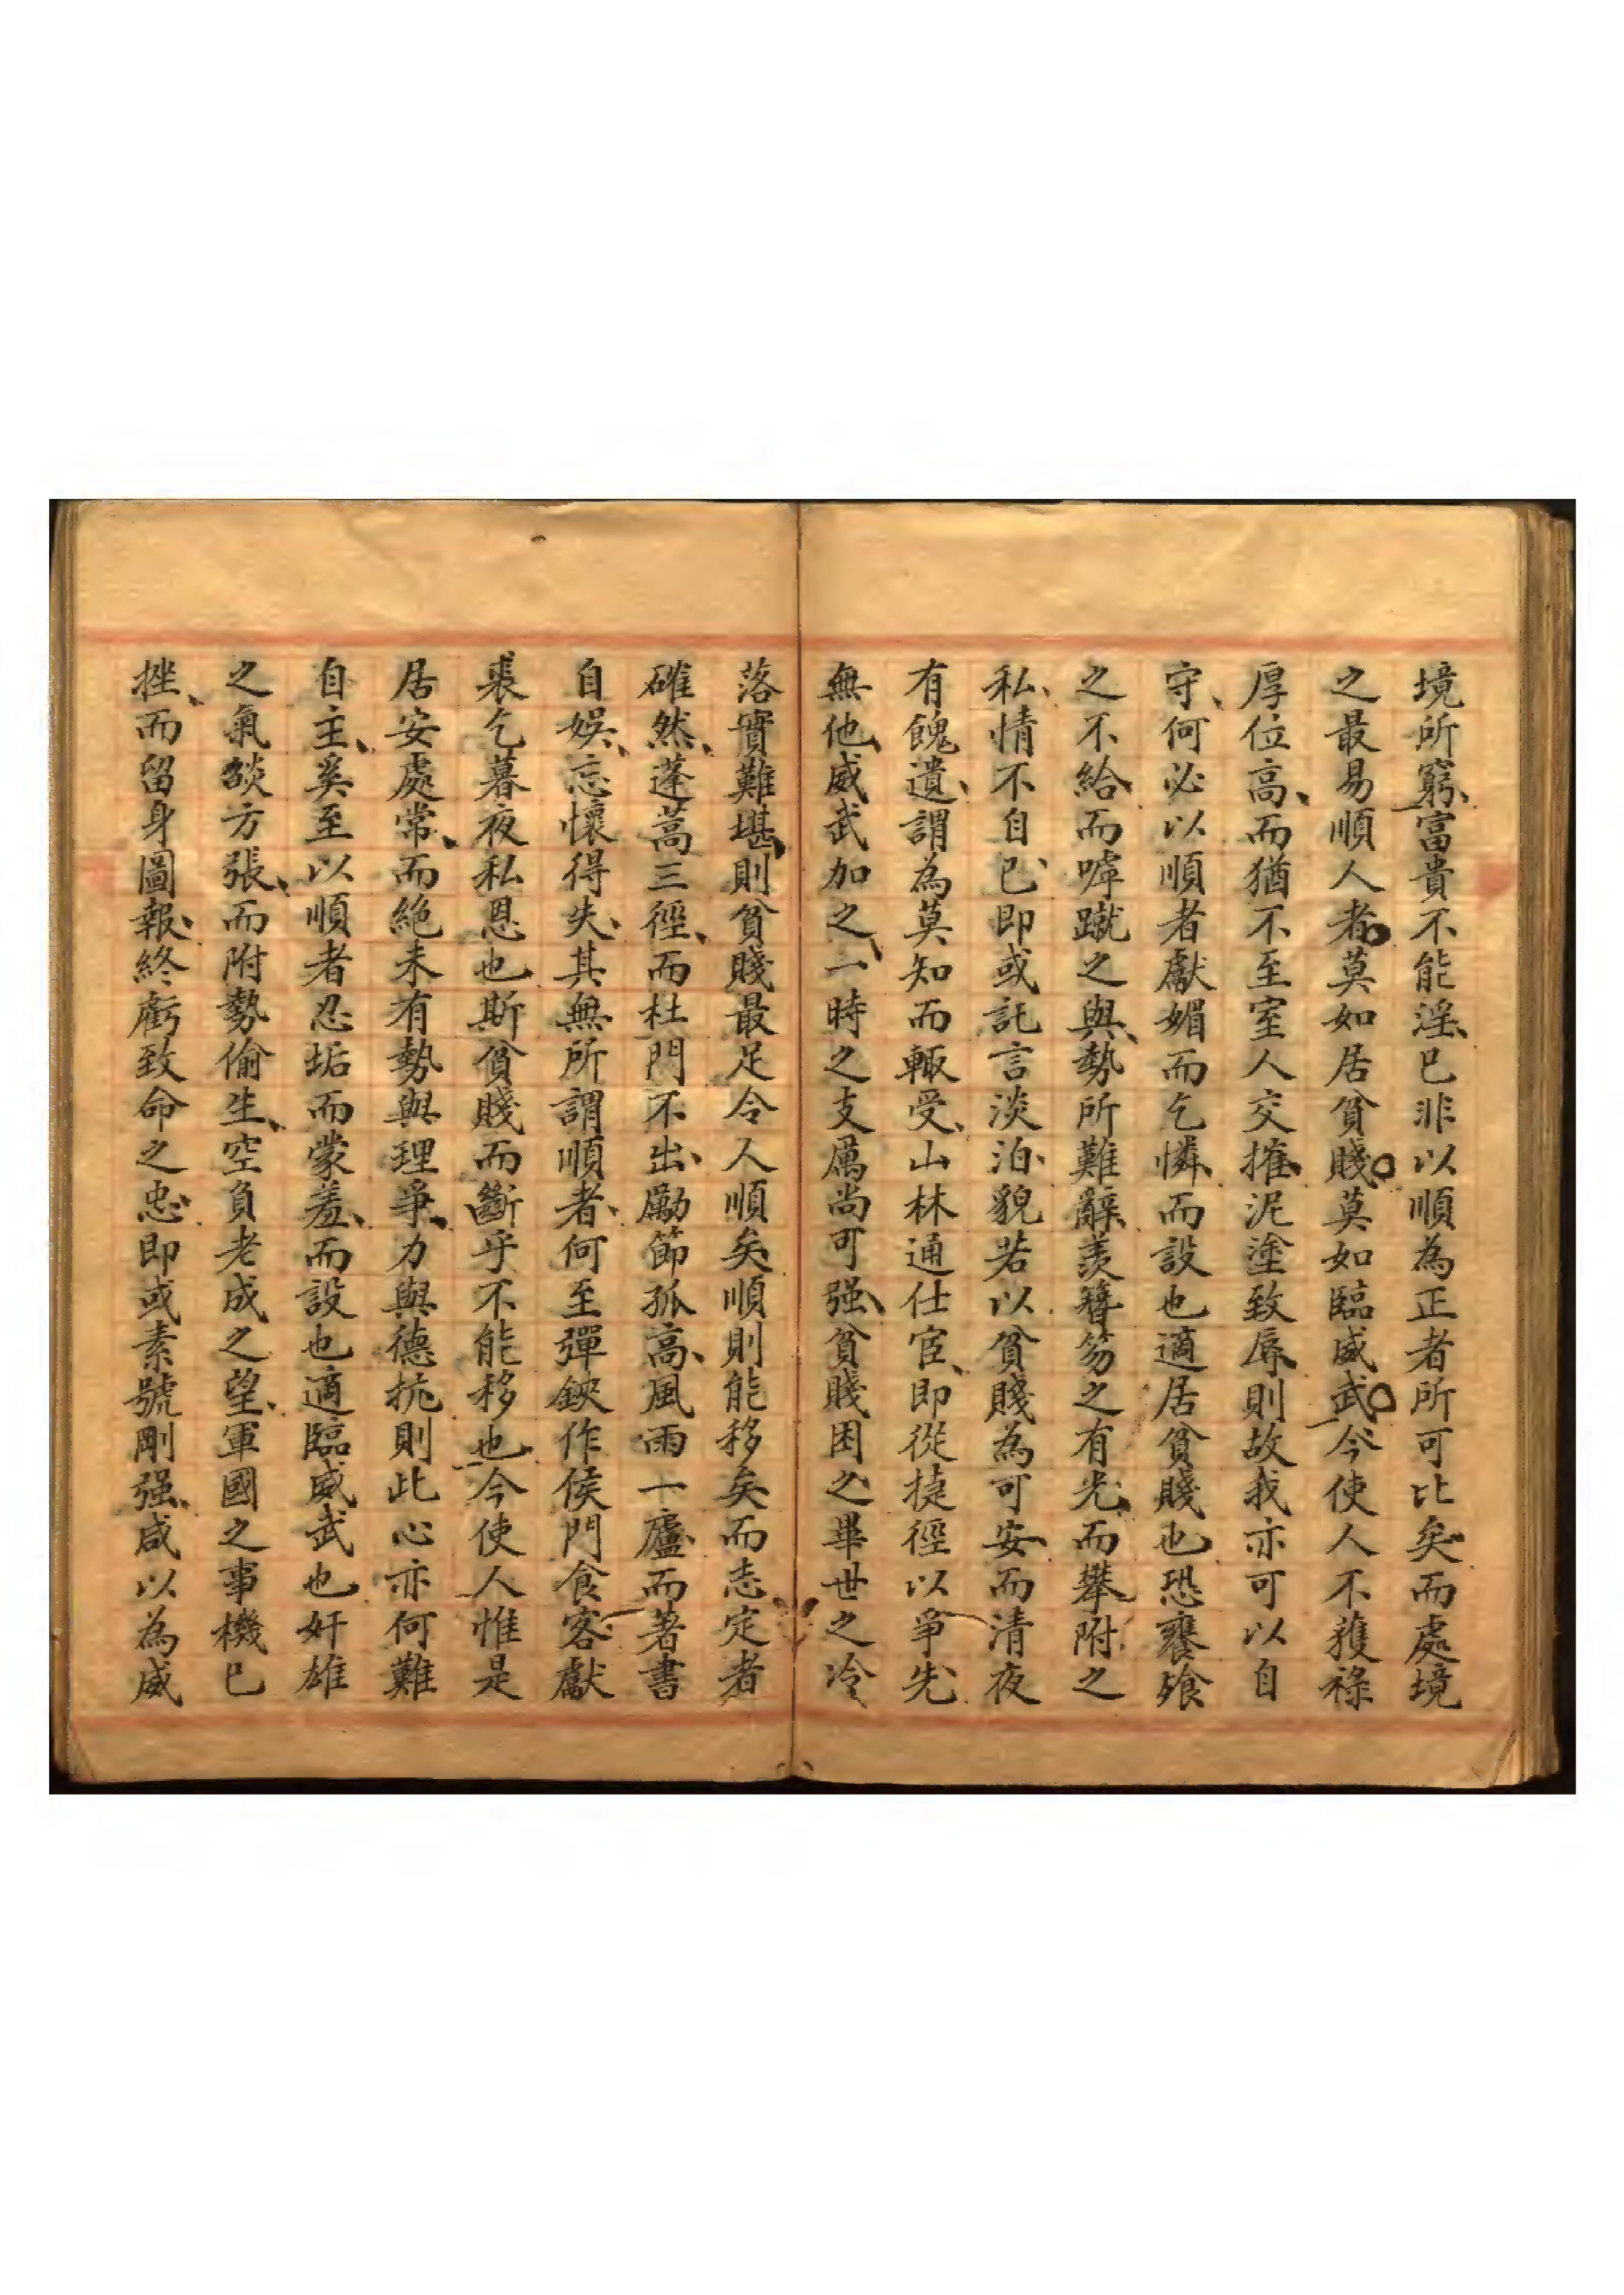 境所窮富貴不能淫已非以順為正者所可比矣而處境
之最易順人者莫如居貧賤莫如臨威武今使人不獲祿
厚位高而猶不至室人交摧泥塗致辱則故我亦可以自
守何必以順者獻媚而乞憐而設也適居貧賤也恐饔飱
之不給而嘑蹴之與勢所難辭羨簪笏之有光而攀附之
私情不自已即或託言淡泊貌若以貧賤為可安而清夜
有餽遺謂為莫知而輙受山林通仕宦即從捷徑以爭先
無他威武加之一時之支厲尚可强貧賤困之畢世之冷
落實難堪則貧賤最足令人順矣順則能移矣而志定者
確然蓬蒿三徑而杜門不出勵節孤高風雨一廬而著書
自娛忘懷得失其無所謂順者何至彈鋏作侯門食客獻
裘乞暮夜私恩也斯貧賤而斷乎不能移也今使人惟是
居安處常而絕未有勢與理爭力與德抗則此心亦何難
自主奚至以順者忍垢而蒙羞而設也適臨威武也奸雄
之氣燄方張而附勢偷生空負老成之望軍國之事機已
挫而留身圖報終虧致命之忠即或素號剛强咸以為威